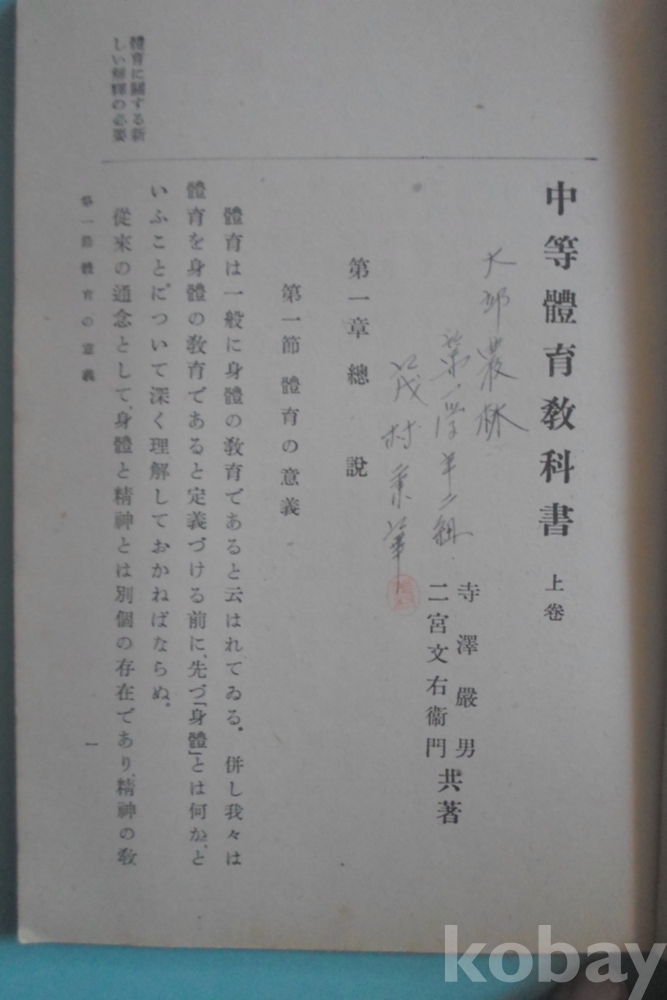 中等體育教科書 上卷
大邱農林
第一学年二組
茂村
寺澤嚴男
二宮文右衞門
共著
第一章 總說
第一節 體育の意義
體育に關する新
しい解釋の必要
體育は一般に身體の教育であると云はれてゐる。併し我々は
體育を身體の教育であると定義づける前に、先づ「身體」とは何か、と
いふことについて深く理解しておかねばならぬ。
從來の通念として、身體と精神とは別個の存在であり、精神の教
第一節 體育の意義
一
kobay